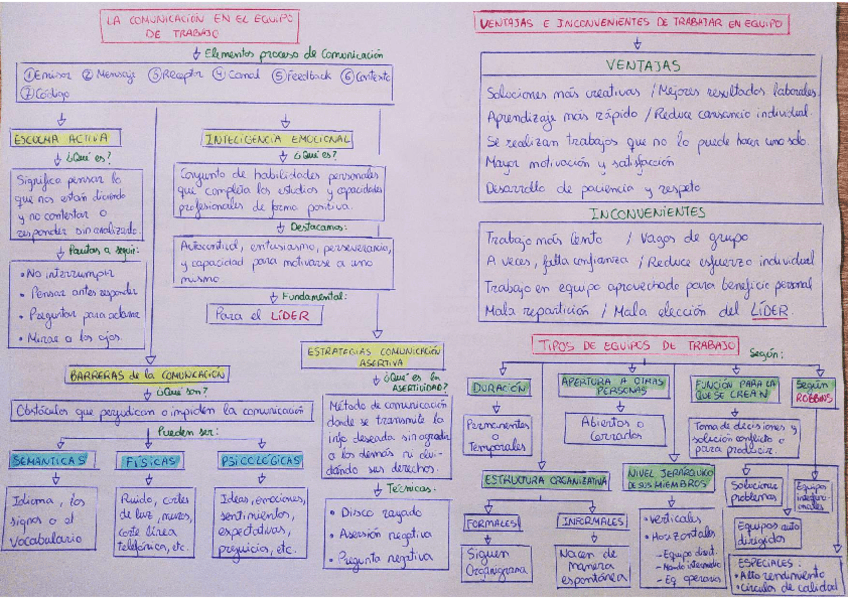 LA COMUNICACIÓN EN EL EQUIPO
DE TRABAJO
Elementos proceso de Comunicación
① Emisor ② Mensaje ③ Receptor ④ Canal ⑤ Feedback ⑥ Contexto
⑦ Código
ESCUCHA ACTIVA
¿Qué es?
Significa pensar lo
que nos están diciendo
y no contestar o
responder sin analizarlo.
Pautas a seguir:
• No interrumpir
• Pensar antes responder
• Preguntar para aclarar
• Mirar a los ojos.
INTELIGENCIA EMOCIONAL
¿Qué es?
Conjunto de habilidades personales
que completa los estudios y capacidades
profesionales de forma positiva.
Destacamos:
Autocontrol, entusiasmo, perseverancia,
y capacidad para motivarse a uno
mismo
Fundamental:
Para el LÍDER
BARRERAS de la COMUNICACIÓN
¿Qué son?
Obstáculos que perjudican o impiden la comunicación
Pueden ser:
SEMÁNTICAS
Idioma, los
signos o el
vocabulario
FÍSICAS
Ruido, cortes
de luz, muros,
corte línea
telefónica, etc.
PSICOLÓGICAS
Ideas, emociones,
sentimientos,
expectativas,
prejuicios, etc.
ESTRATEGIAS COMUNICACIÓN
ASERTIVA
¿Qué es la
ASERTIVIDAD?
Método de comunicación
donde se transmite la
info deseada sin agredir
a los demás ni olvi-
dando sus derechos.
Técnicas:
• Disco rayado
• Aserción negativa
• Pregunta negativa
VENTAJAS E INCONVENIENTES DE TRABAJAR EN EQUIPO
VENTAJAS
Soluciones más creativas / Mejores resultados laborales.
Aprendizaje más rápido / Reduce cansancio individual.
Se realizan trabajos que no lo puede hacer uno solo.
Mayor motivación y satisfacción
Desarrollo de paciencia y respeto
INCONVENIENTES
Trabajo más lento / Vagos de grupo
A veces, falta confianza / Reduce esfuerzo individual
Trabajo en equipo aprovechado para beneficio personal
Mala repartición / Mala elección del LÍDER.
TIPOS DE EQUIPOS DE TRABAJO
Según:
DURACIÓN
Permanentes
o
Temporales
APERTURA A OTRAS
PERSONAS
Abiertos o
Cerrados
FUNCIÓN PARA LA
QUE SE CREAN
Toma de decisiones y
solución conflicto o
para producir.
Según
ROBBINS
Soluciones
problemas
Equipos
interfuncio-
nales
Equipos auto
dirigidos
ESPECIALES:
• Alto rendimiento
• Círculos de calidad
ESTRUCTURA ORGANIZATIVA
FORMALES
Siguen
Organigrama
INFORMALES
Nacen de
manera
espontánea
NIVEL JERÁRQUICO
DE SUS MIEMBROS
• Verticales
• Horizontales
- Equipo direct.
- Mando intermedio
- Eq operarios